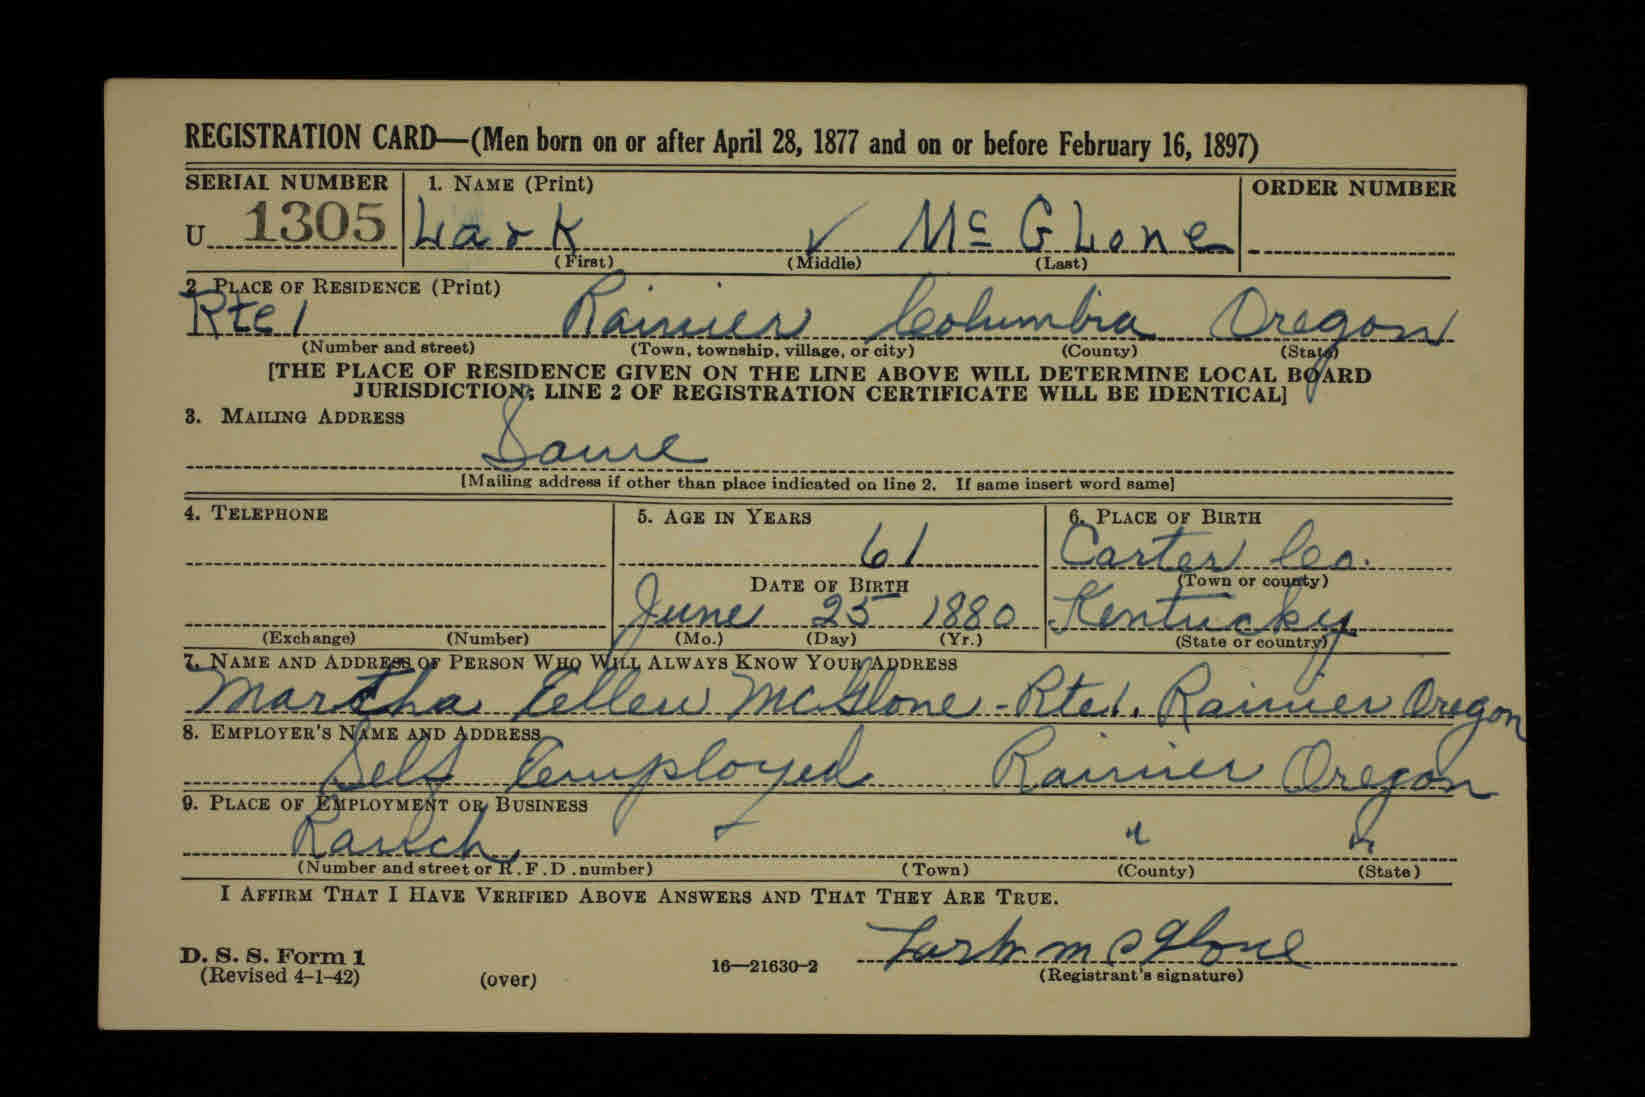 REGISTRATION CARD—(Men born on or after April 28, 1877 and on or before February 16, 1897)
SERIAL NUMBER 1. NAME (Print) ORDER NUMBER
U 1305 Lark ✓ McGlone
(First) (Middle) (Last)
2. PLACE OF RESIDENCE (Print)
Rte 1 Rainier Columbia Oregon
(Number and street) (Town, township, village, or city) (County) (State)
[THE PLACE OF RESIDENCE GIVEN ON THE LINE ABOVE WILL DETERMINE LOCAL BOARD
JURISDICTION; LINE 2 OF REGISTRATION CERTIFICATE WILL BE IDENTICAL]
3. MAILING ADDRESS
Same
[Mailing address if other than place indicated on line 2. If same insert word same]
4. TELEPHONE 5. AGE IN YEARS 6. PLACE OF BIRTH
61 Carter Co.
DATE OF BIRTH (Town or county)
June 25 1880 Kentucky
(Exchange) (Number) (Mo.) (Day) (Yr.) (State or country)
7. NAME AND ADDRESS OF PERSON WHO WILL ALWAYS KNOW YOUR ADDRESS
Martha Ellen McGlone - Rte 1. Rainier Oregon
8. EMPLOYER'S NAME AND ADDRESS
Self Employed Rainier Oregon
9. PLACE OF EMPLOYMENT OR BUSINESS
Ranch " "
(Number and street or R. F. D. number) (Town) (County) (State)
I AFFIRM THAT I HAVE VERIFIED ABOVE ANSWERS AND THAT THEY ARE TRUE.
Lark McGlone
D. S. S. Form 1
(Revised 4-1-42) (over) 16—21630-2 (Registrant's signature)